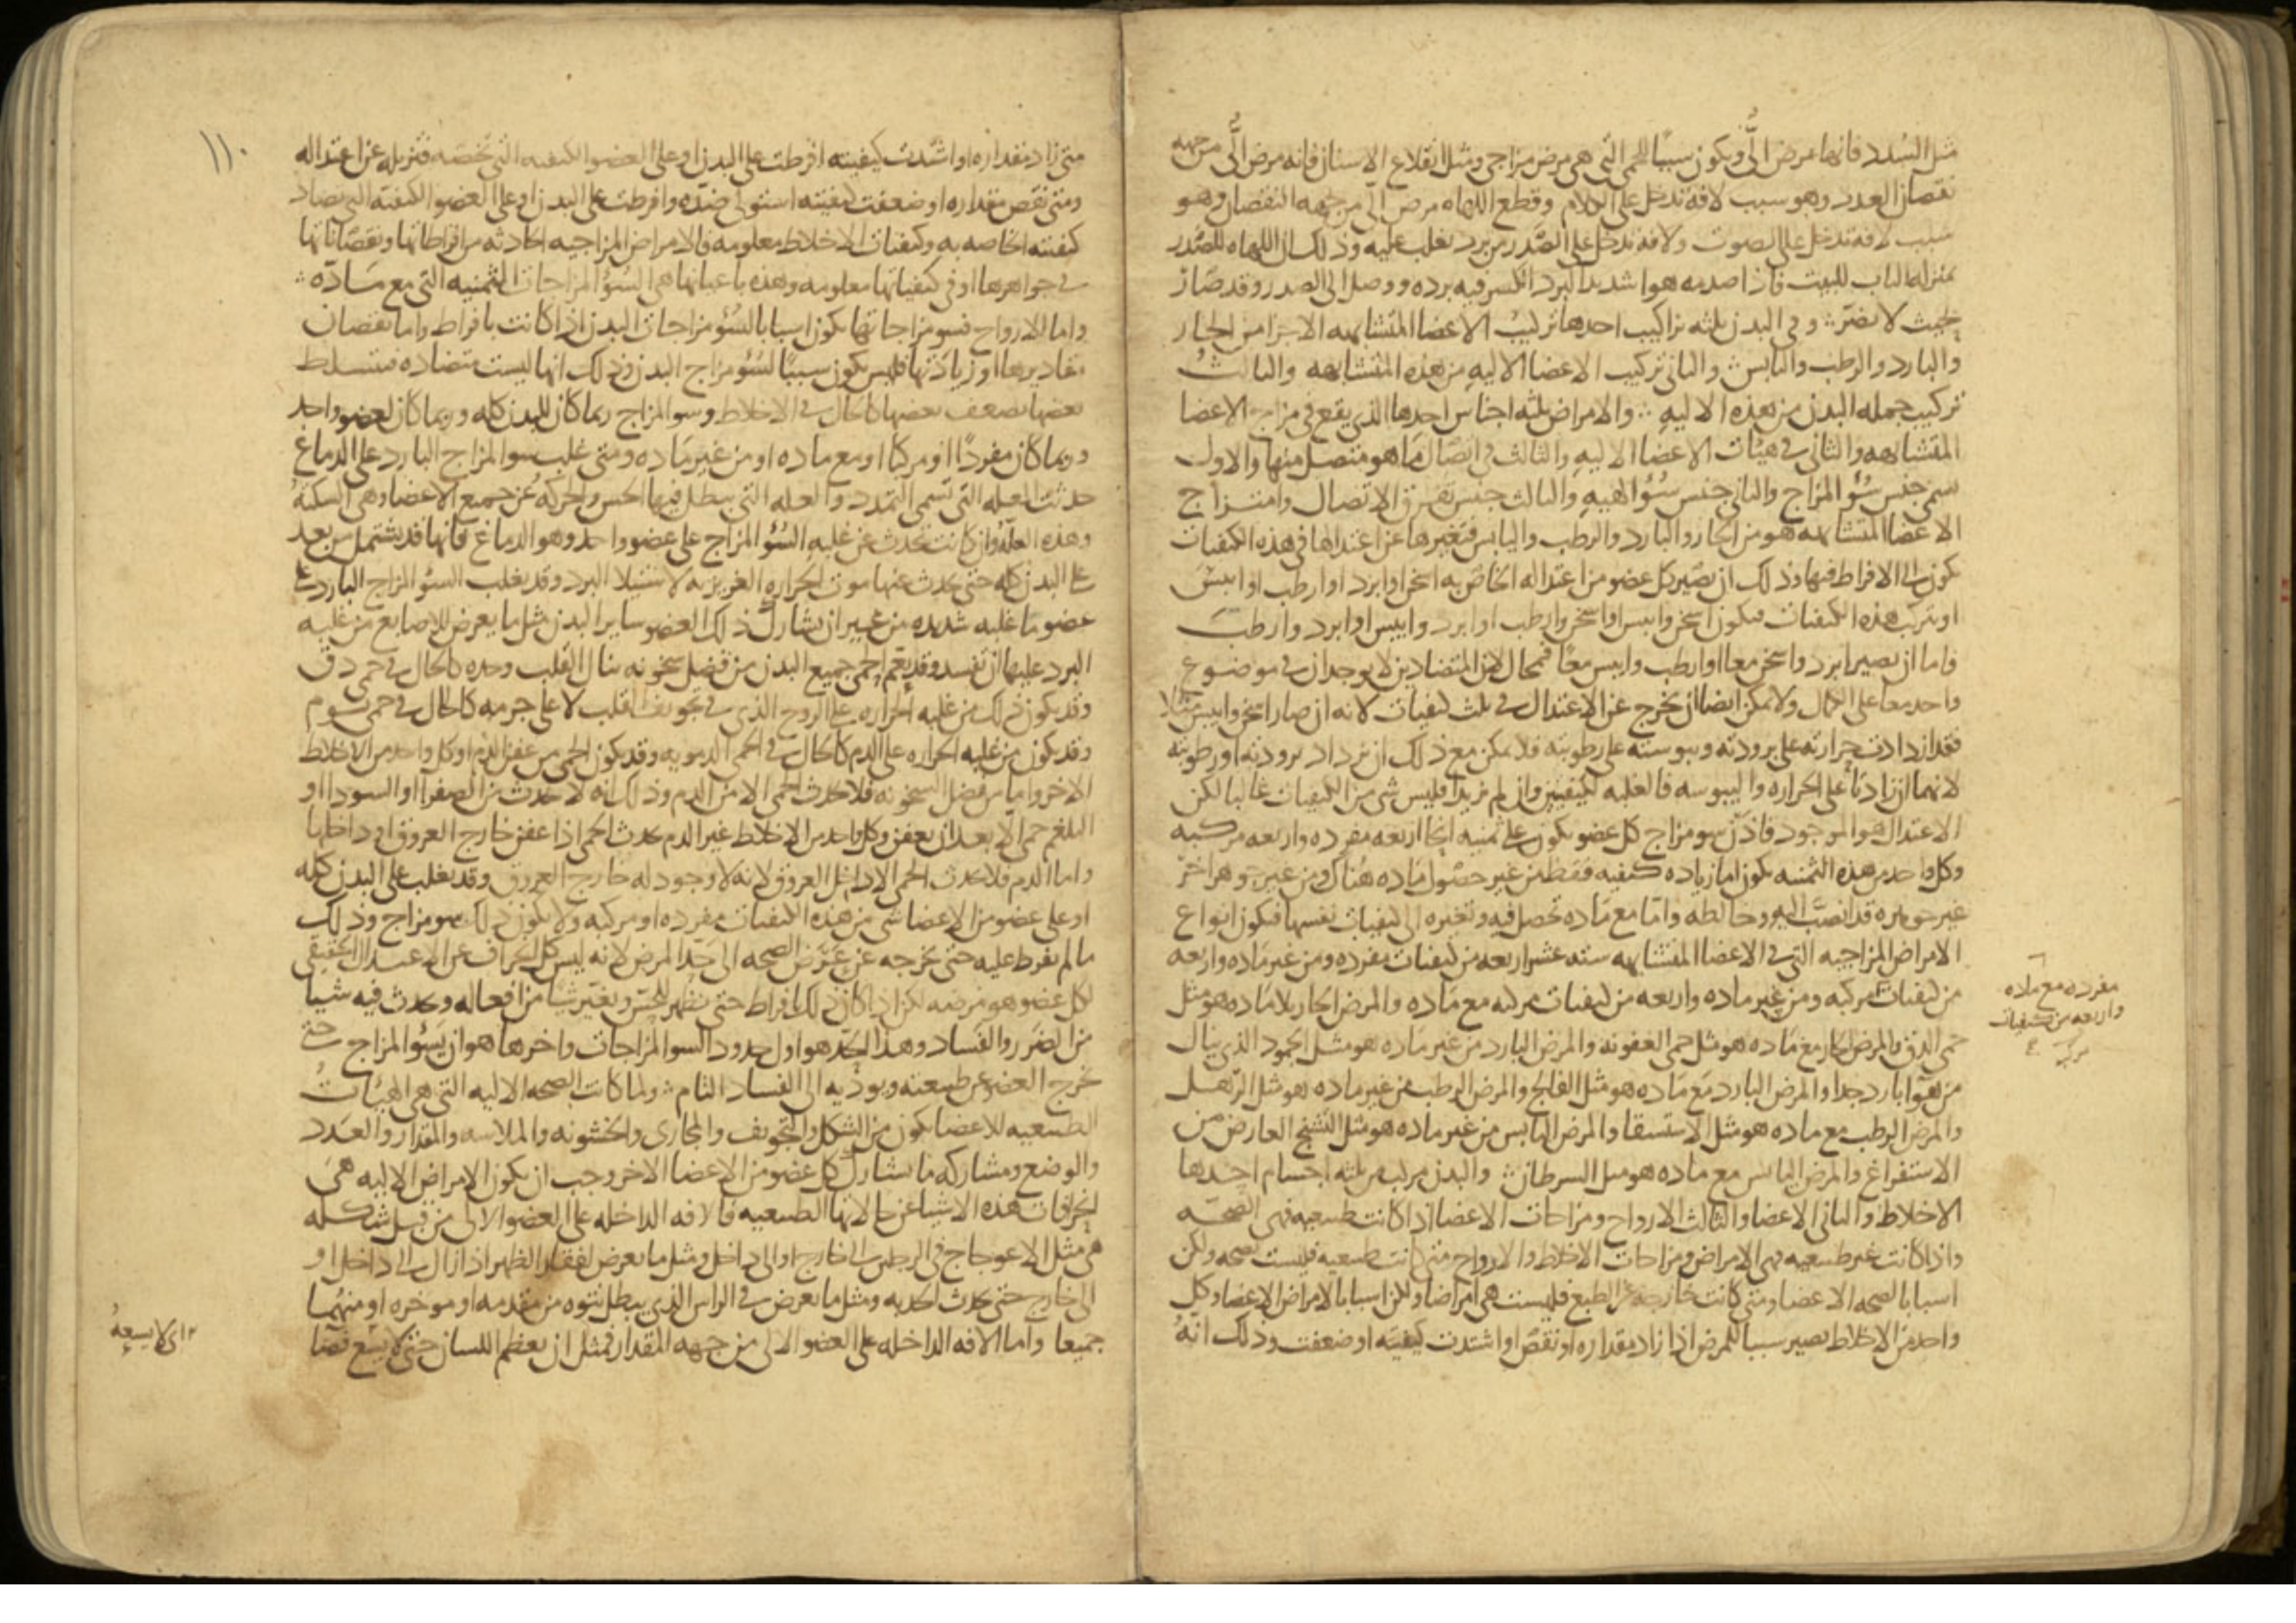 مثل السدد فانها مرض الى ويكون سببا للحمى التى هى مرض مزاجى ومثل انقلاع الاسنان فانه مرض الى من جهه
نقصان العدد وهو سبب لافه تدخل على الكلام وقطع اللهاه مرض الى من جهه النقصان وهو
سبب لافه تدخل على الصوت ولافه تدخل على الصدر من برد يغلب عليه وذلك ان اللهاه للصدر
بمنزله الباب للبيت فاذا صدمه هوا شديد البرد انكسر فيه برده ووصل الى الصدر وقد صار
بحيث لا يضر وفى البدن ثلثه تراكيب احدها تركيب الاعضا المتشابهه الاجزا من الحار
والبارد والرطب واليابس والثانى تركيب الاعضا الاليه من هذه المتشابهه والثالث
تركيب جمله البدن من هذه الاليه والامراض ثلثه اجناس احدها الذى يقع فى مزاج الاعضا
المتشابهه والثانى فى هيئات الاعضا الاليه والثالث فى اتصال ما هو متصل منها والاول
يسمى جنس سوء المزاج والثانى جنس سوء الهيه والثالث جنس تفرق الاتصال وامتزاج
الاعضا المتشابهه هو من الحار والبارد والرطب واليابس فتغيرها عن اعتدالها فى هذه الكيفيات
يكون الى الافراط فيها وذلك ان يصير كل عضو من اعتداله الخاص به اسخن او ابرد او ارطب او ايبس
او يتركب هذه الكيفيات فيكون اسخن وايبس او اسخن وارطب او ابرد وايبس او ابرد وارطب
فاما ان يصير ابرد واسخن معا او ارطب وايبس معا فمحال لان المتضادين لا يوجدان فى موضوع
واحد معا على الكمال ولا يمكن ايضا ان يخرج عن الاعتدال فى ثلث كيفيات لانه ان صار اسخن وايبس مثلا
فقد ازدادت حرارته على برودته ويبوسته على رطوبته فلا يمكن مع ذلك ان تزداد برودته او رطوبته
لانهما ان زادتا على الحراره واليبوسه فالغلبه لكيفيتين وان لم تزيدا فليس شى من الكيفيات غالبا لكن
الاعتدال هو الموجود فاذن سو مزاج كل عضو يكون على ثمنيه انحا اربعه مفرده واربعه مركبه
وكل واحد من هذه الثمنيه يكون اما زياده كيفيه فقط من غير حصول ماده هناك من غير جوهر اخر
غير جوهره قد انصب اليه وخالطه واما مع ماده تحصل فيه وتغيره الى كيفيات نفسها فيكون انواع
الامراض المزاجيه التى فى الاعضا المتشابهه سته عشر اربعه من كيفيات مفرده ومن غير ماده واربعه
من كيفيات مركبه ومن غير ماده واربعه من كيفيات مركبه مع ماده والمرض الحار بلا ماده هو مثل
حمى الدق والمرض الحار مع ماده هو مثل حمى العفونه والمرض البارد من غير ماده هو مثل الجمود الذى ينال
من هوا بارد جدا والمرض البارد مع ماده هو مثل الفالج والمرض الرطب من غير ماده هو مثل الترهل
والمرض الرطب مع ماده هو مثل الاستسقا والمرض اليابس من غير ماده هو مثل التشنج العارض من
الاستفراغ والمرض اليابس مع ماده هو مثل السرطان والبدن مركب من ثلثه اجسام احدها
الاخلاط والثانى الاعضا والثالث الارواح ومزاجات الاعضا اذا كانت طبيعيه فهى الصحه
واذا كانت غير طبيعيه فهى الامراض ومزاجات الاخلاط والارواح متى كانت طبيعيه فليست صحه ولكن
اسبابا لصحه الاعضا ومتى كانت خارجه عن الطبع فليست هى امراضا ولكن اسبابا لامراض الاعضا وكل
واحد من الاخلاط يصير سببا للمرض اذا زاد مقداره او نقص او اشتدت كيفيته او ضعفت وذلك انه
مفرده مع ماده
واربعه من كيفيات
مركبه
١١٠
متى زاد مقداره او اشتدت كيفيته افرطت على البدن او على العضو الكيفيه التى تخصه فتزيله عن اعتداله
ومتى نقص مقداره او ضعفت كيفيته استولى ضده وافرطت على البدن او على العضو الكيفيه التى تضاد
كيفيته الخاصه به وكيفيات الاخلاط معلومه فالامراض المزاجيه الحادثه من افراطاتها ونقصاناتها
فى جواهرها او فى كيفياتها معلومه وهذه باعيانها هى السؤ المزاجات الثمنيه التى مع ماده
واما الارواح فسو مزاجاتها يكون اسبابا لسؤ مزاجات البدن اذا كانت بافراط واما نقصان
مقاديرها او زيادتها فليس يكون سببا لسؤ مزاج البدن وذلك انها ليست متضاده فتسلط
بعضها بضعف بعضها كالحال فى الاخلاط وسو المزاج ربما كان للبدن كله وربما كان لعضو واحد
وربما كان مفردا او مركبا او مع ماده او من غير ماده ومتى غلب سو المزاج البارد على الدماغ
حدثت العله التى تسمى التمدد والعله التى يبطل فيها الحس والحركه عن جميع الاعضا وهى السكته
وهذه العله وان كانت تحدث عن غلبه السؤ المزاج على عضو واحد وهو الدماغ فانها قد تشتمل من بعد
على البدن كله حتى يحدث عنها موت الحراره الغريزيه لاستيلا البرد وقد يغلب السؤ المزاج البارد على
عضو ما غلبه شديده من غير ان يشارك ذلك العضو ساير البدن مثل ما يعرض للاصابع من غلبه
البرد عليها ان تفسد وقد يعم الحمى جميع البدن من فضل سخونه ينال القلب وحده كالحال فى حمى دق
وقد يكون ذلك من غلبه الحراره على الروح الذى فى تجويف القلب لا على جرمه كالحال فى حمى يوم
وقد يكون من غلبه الحراره على الدم كالحال فى الحمى الدمويه وقد يكون الحمى من عفن الدم او كل واحد من الاخلاط
الاخر واما من فضل السخونه فلا تحدث الحمى الا من الدم وذلك انه لا تحدث من الصفرا او السودا او
البلغم حمى الا بعد ان يعفن وكل واحد من الاخلاط غير الدم يحدث الحمى اذا عفن خارج العروق او داخلها
واما الدم فلا يحدث الحمى الا داخل العروق لانه لا وجود له خارج العروق وقد يغلب على البدن كله
او على عضو من الاعضا شى من هذه الكيفيات مفرده او مركبه ولا يكون ذلك سو مزاج وذلك
ما لم يفرط عليه حتى يخرجه عن عرض الصحه الى حد المرض لانه ليس كل انحراف عن الاعتدال الحقيقى
لكل عضو هو مرضه لكن اذا كان ذلك بافراط حتى يظهر للحس ويغير شيا من افعاله ويحدث فيه شيا
من الضرر والفساد وهذا الحد هو اول حدود السو المزاجات واخرها هو ان يسؤ المزاج حتى
يخرج العضو عن طبيعته ويوديه الى الفساد التام ولما كانت الصحه الاليه التى هى الهيئات
الطبيعيه للاعضا يكون من الشكل والتجويف والمجارى والخشونه والملاسه والمقدار والعدد
والوضع ومشاركه ما يشارك كل عضو من الاعضا الاخر وجب ان يكون الامراض الاليه هى
انحرافات هذه الاشيا عن حالاتها الطبيعيه فالافه الداخله على العضو الالى من قبل شكله
هى مثل الاعوجاج فى الرجلين الى خارج او الى داخل ومثل ما يعرض لفقار الظهر اذا زال الى داخل او
الى خارج حتى يحدث الحدبه ومثل ما يعرض فى الراس الذى يبطل نتوه من مقدمه او موخره او منهما
جميعا واما الافه الداخله على العضو الالى من جهه المقدار فمثل ان يعظم اللسان حتى لا يسع فضا
اى لا يسعه